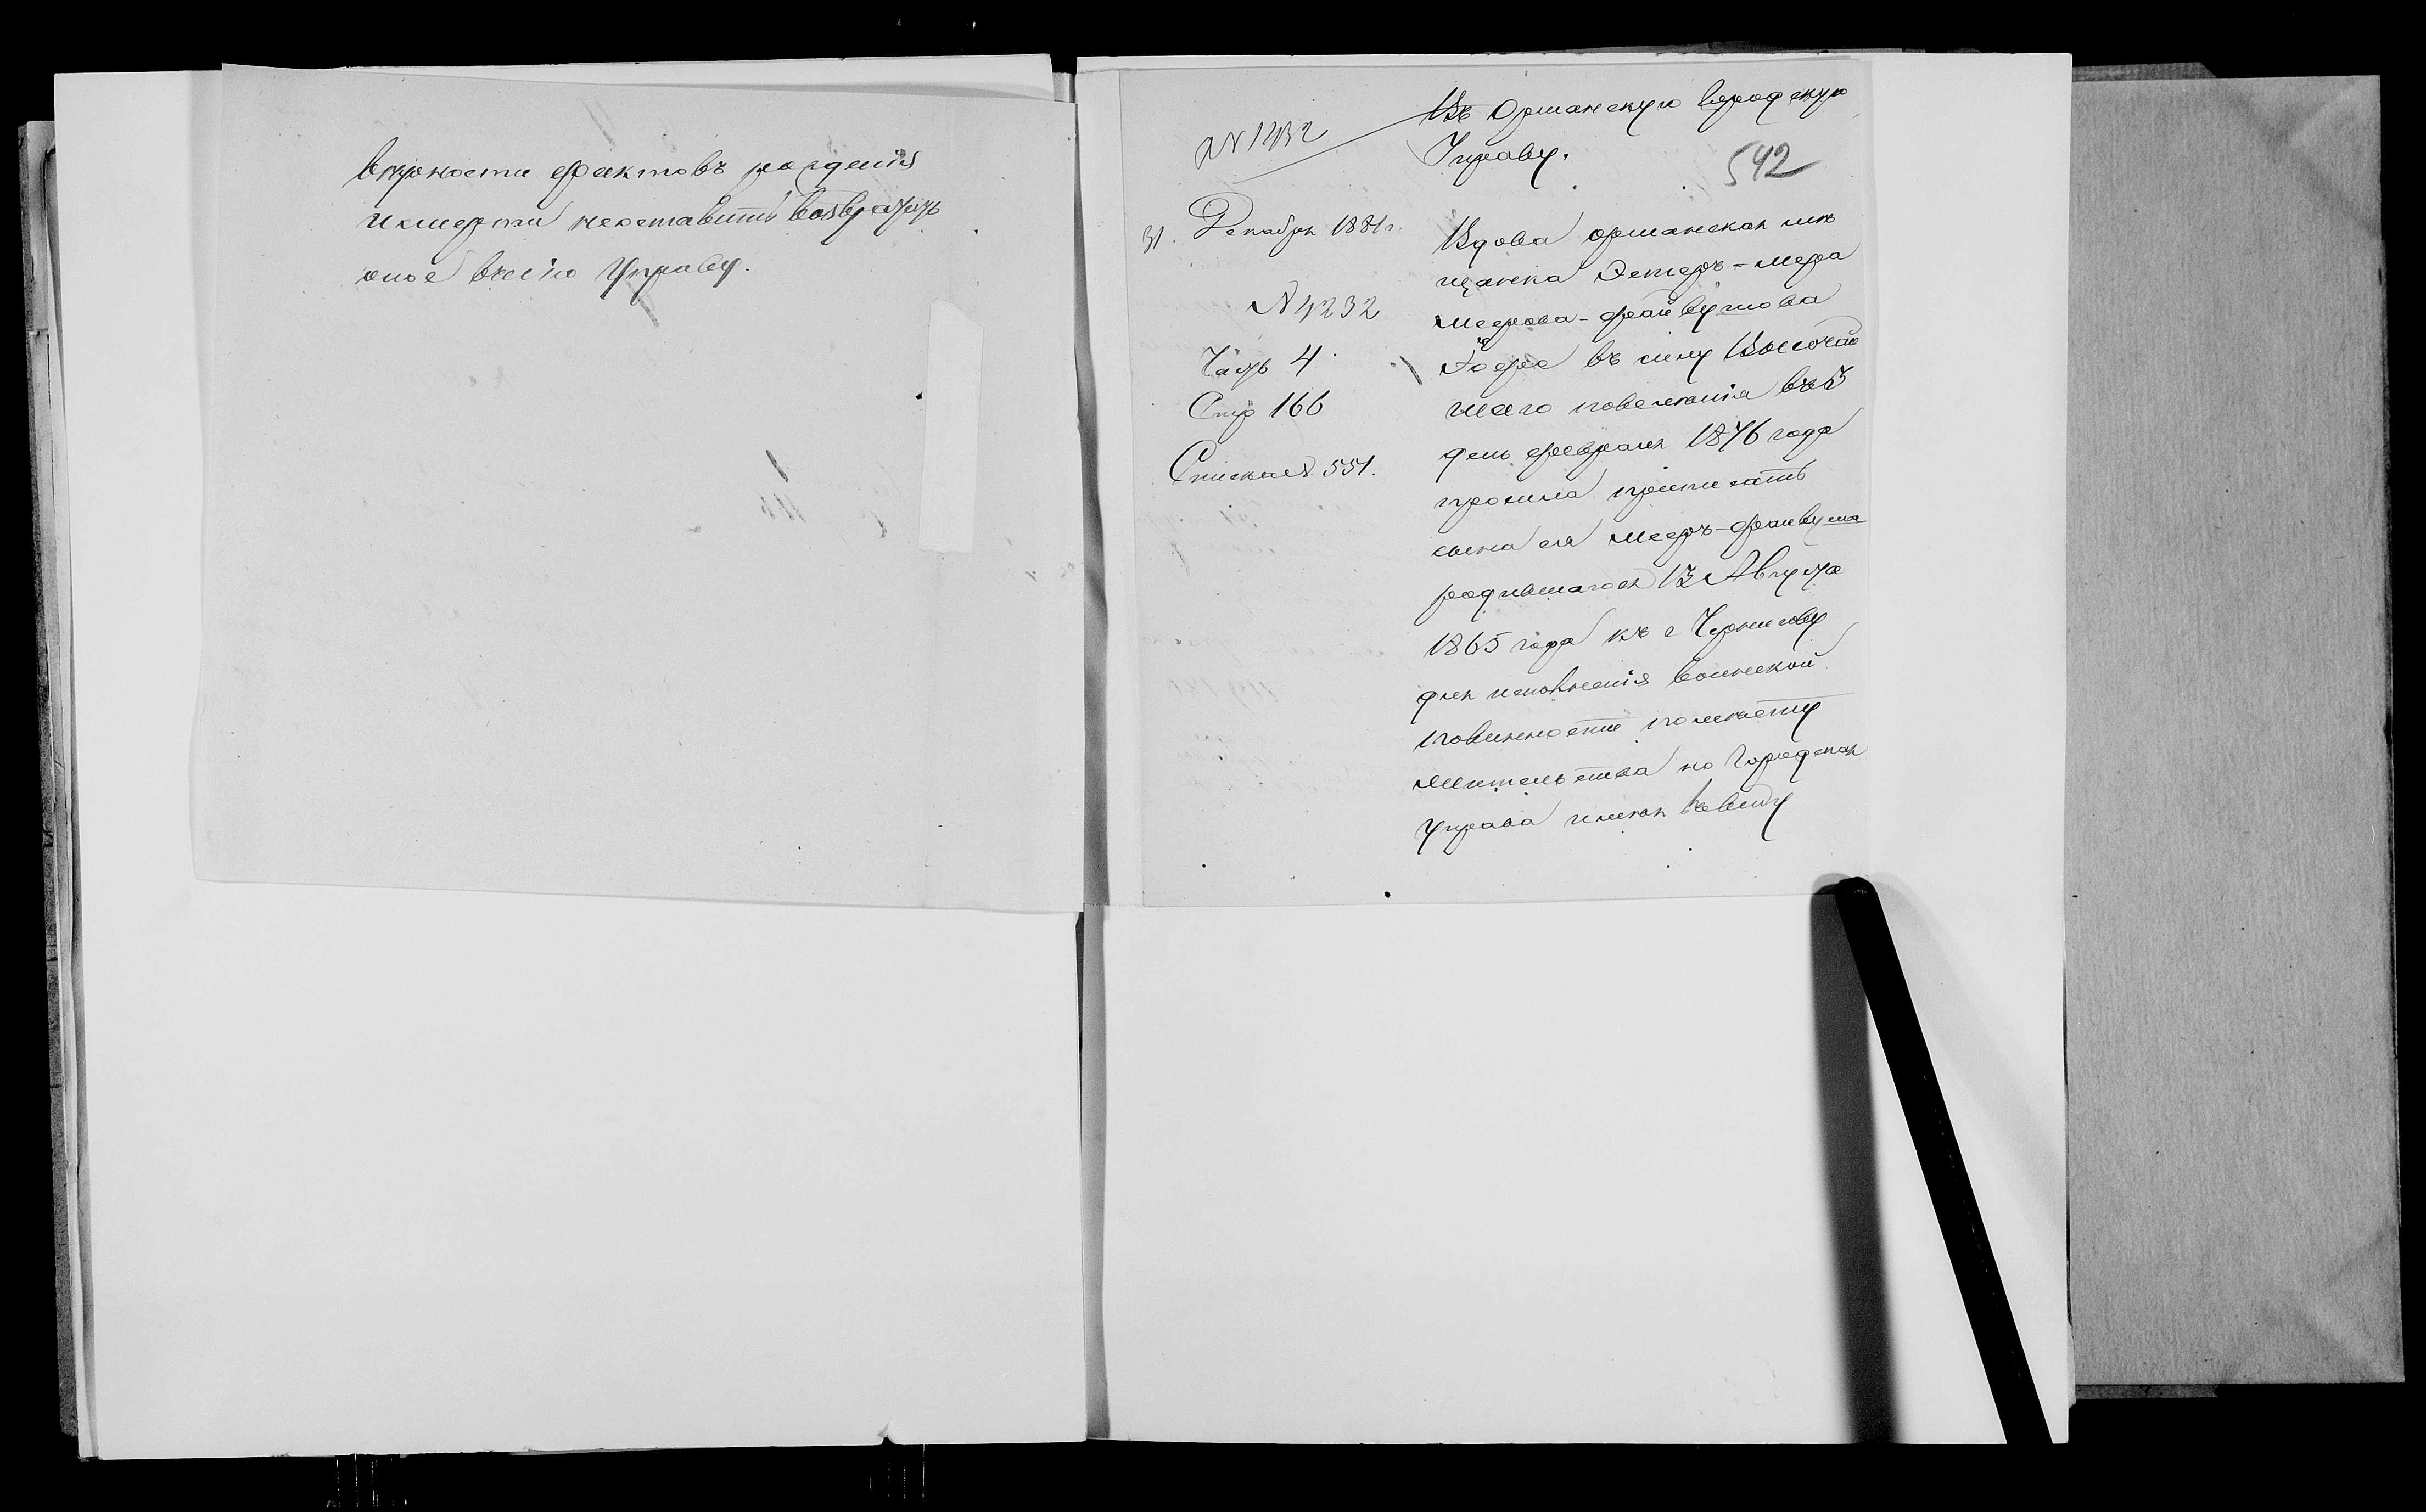 верности фактовъ рожденія
и смерти неоставить возвратить
оное въ сію Управу.
№ 1432
Въ Оршанскую Городскую
Управу.
542
31. Декабря 1881 г.
№ 4232
Часть 4
Стр 166
Списка № 551.
Вдова оршанская мѣ
щанка Эстеръ-Мера
Меерова-Файвушова
въ силу Высочай
шаго повеленія въ 3
день февраля 1876 года
просила приписать
сына ея Мееръ-Файвуша
родившагося 13 Августа
1865 года къ г Чернигову
для исполненія воинской
повинности по мѣсту
жительства но Городская
Управа имѣя ввиду